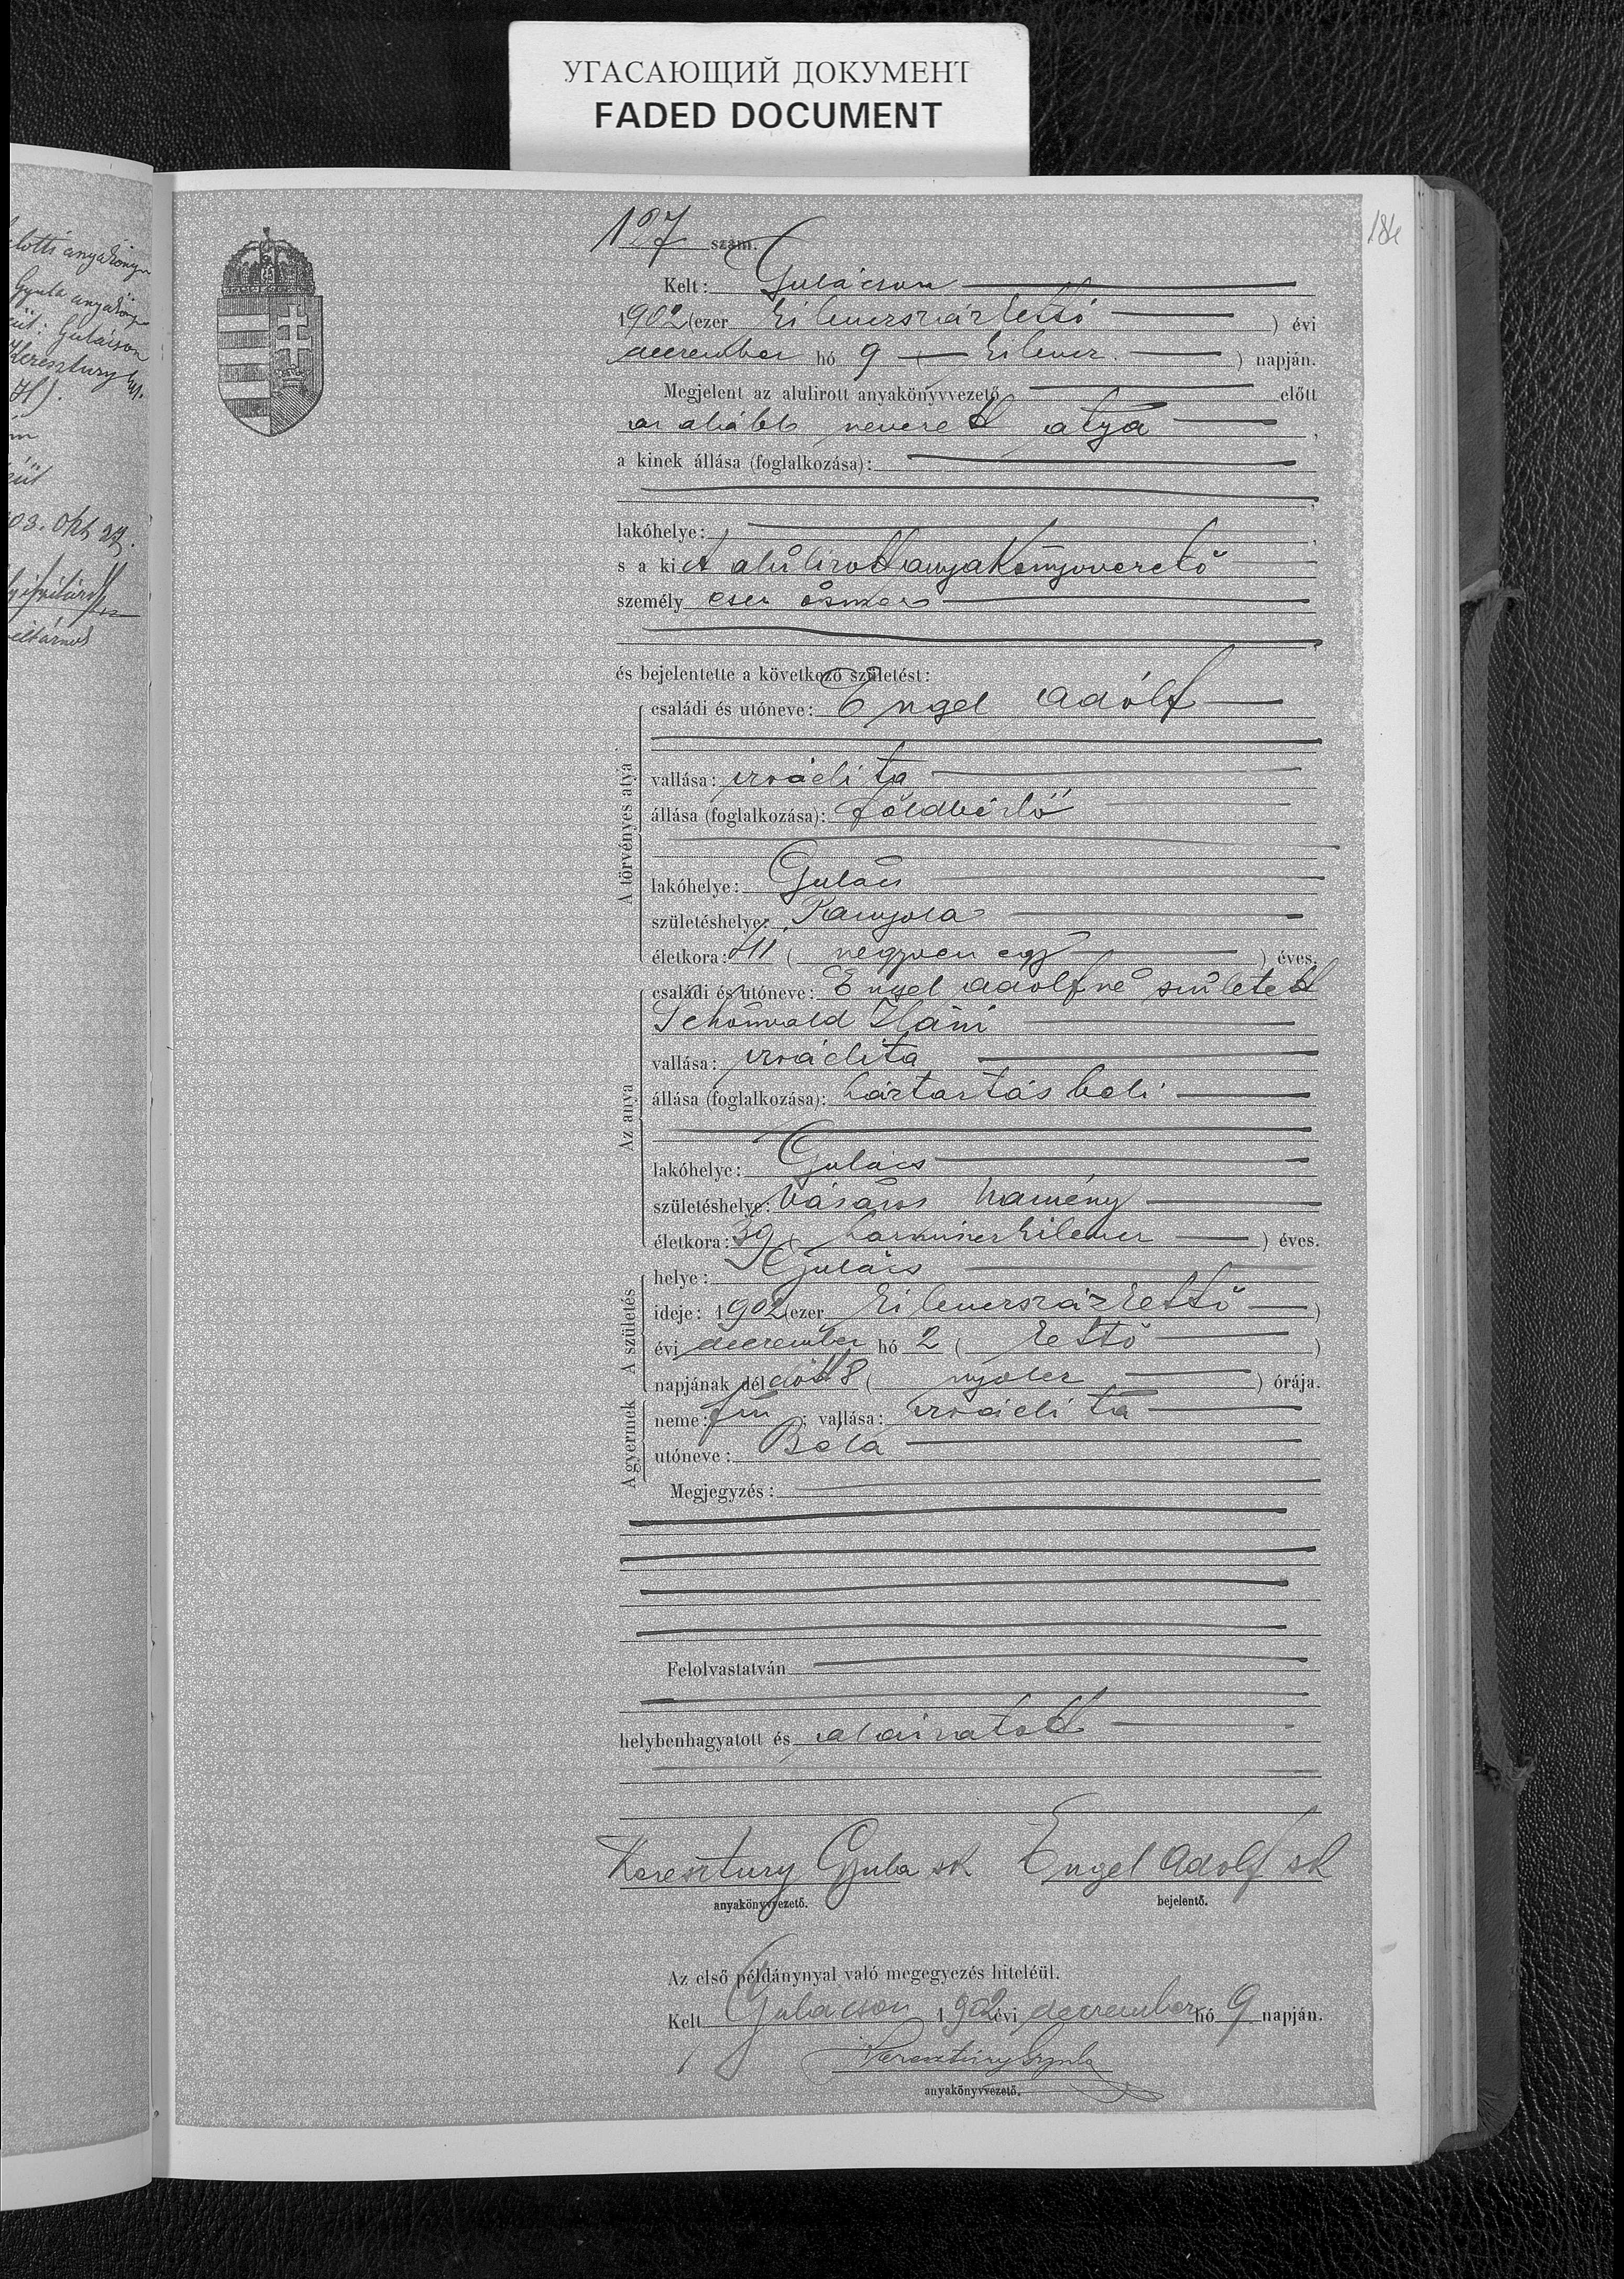 УГАСАЮЩИЙ ДОКУМЕНТ
FADED DOCUMENT
lotti
Gyula
Gulácson
Keresztury
03. Okt 27.
184
127 szám.
Kelt: Gulácson
1902 (ezer kilenczszázkettő ) évi
deczember hó 9 ( kilencz ) napján.
Megjelent az alulirott anyakönyvvezető előtt
az alább nevezett atya ,
a kinek állása (foglalkozása):
lakóhelye: ,
s a kit alúlirott anyakönyvvezető
személyesen ösmer
és bejelentette a következő születést:
A törvényes atya
családi és utóneve: Engel Adólf
vallása: izráelita
állása (foglalkozása): földbérlő
lakóhelye: Gulács
születéshelye: Panyola
életkora: 41 ( negyven egy ) éves.
Az anya
családi és utóneve: Engel Adolfné született
Schönvald Háni
vallása: izráelita
állása (foglalkozása): háztartásbeli
lakóhelye: Gulács
születéshelye: Vásáros Namény
életkora: 39 ( harminczkilencz ) éves.
A születés
helye: Gulács
ideje: 1902 (ezer kilenczszázkettő )
évi deczember hó 2 ( kettő )
napjának délelőtt 8 ( nyolcz ) órája.
A gyermek
neme: fiu ; vallása: izráelita
utóneve: Béla
Megjegyzés:
Felolvastatván
helybenhagyatott és aláiratott
Keresztury Gyula sk Engel Adolf sk
anyakönyvvezető. bejelentő.
Az első példánynyal való megegyezés hiteléül.
Kelt Gulácson 1902 évi deczember hó 9 napján.
Keresztúry Gyula
anyakönyvvezető.